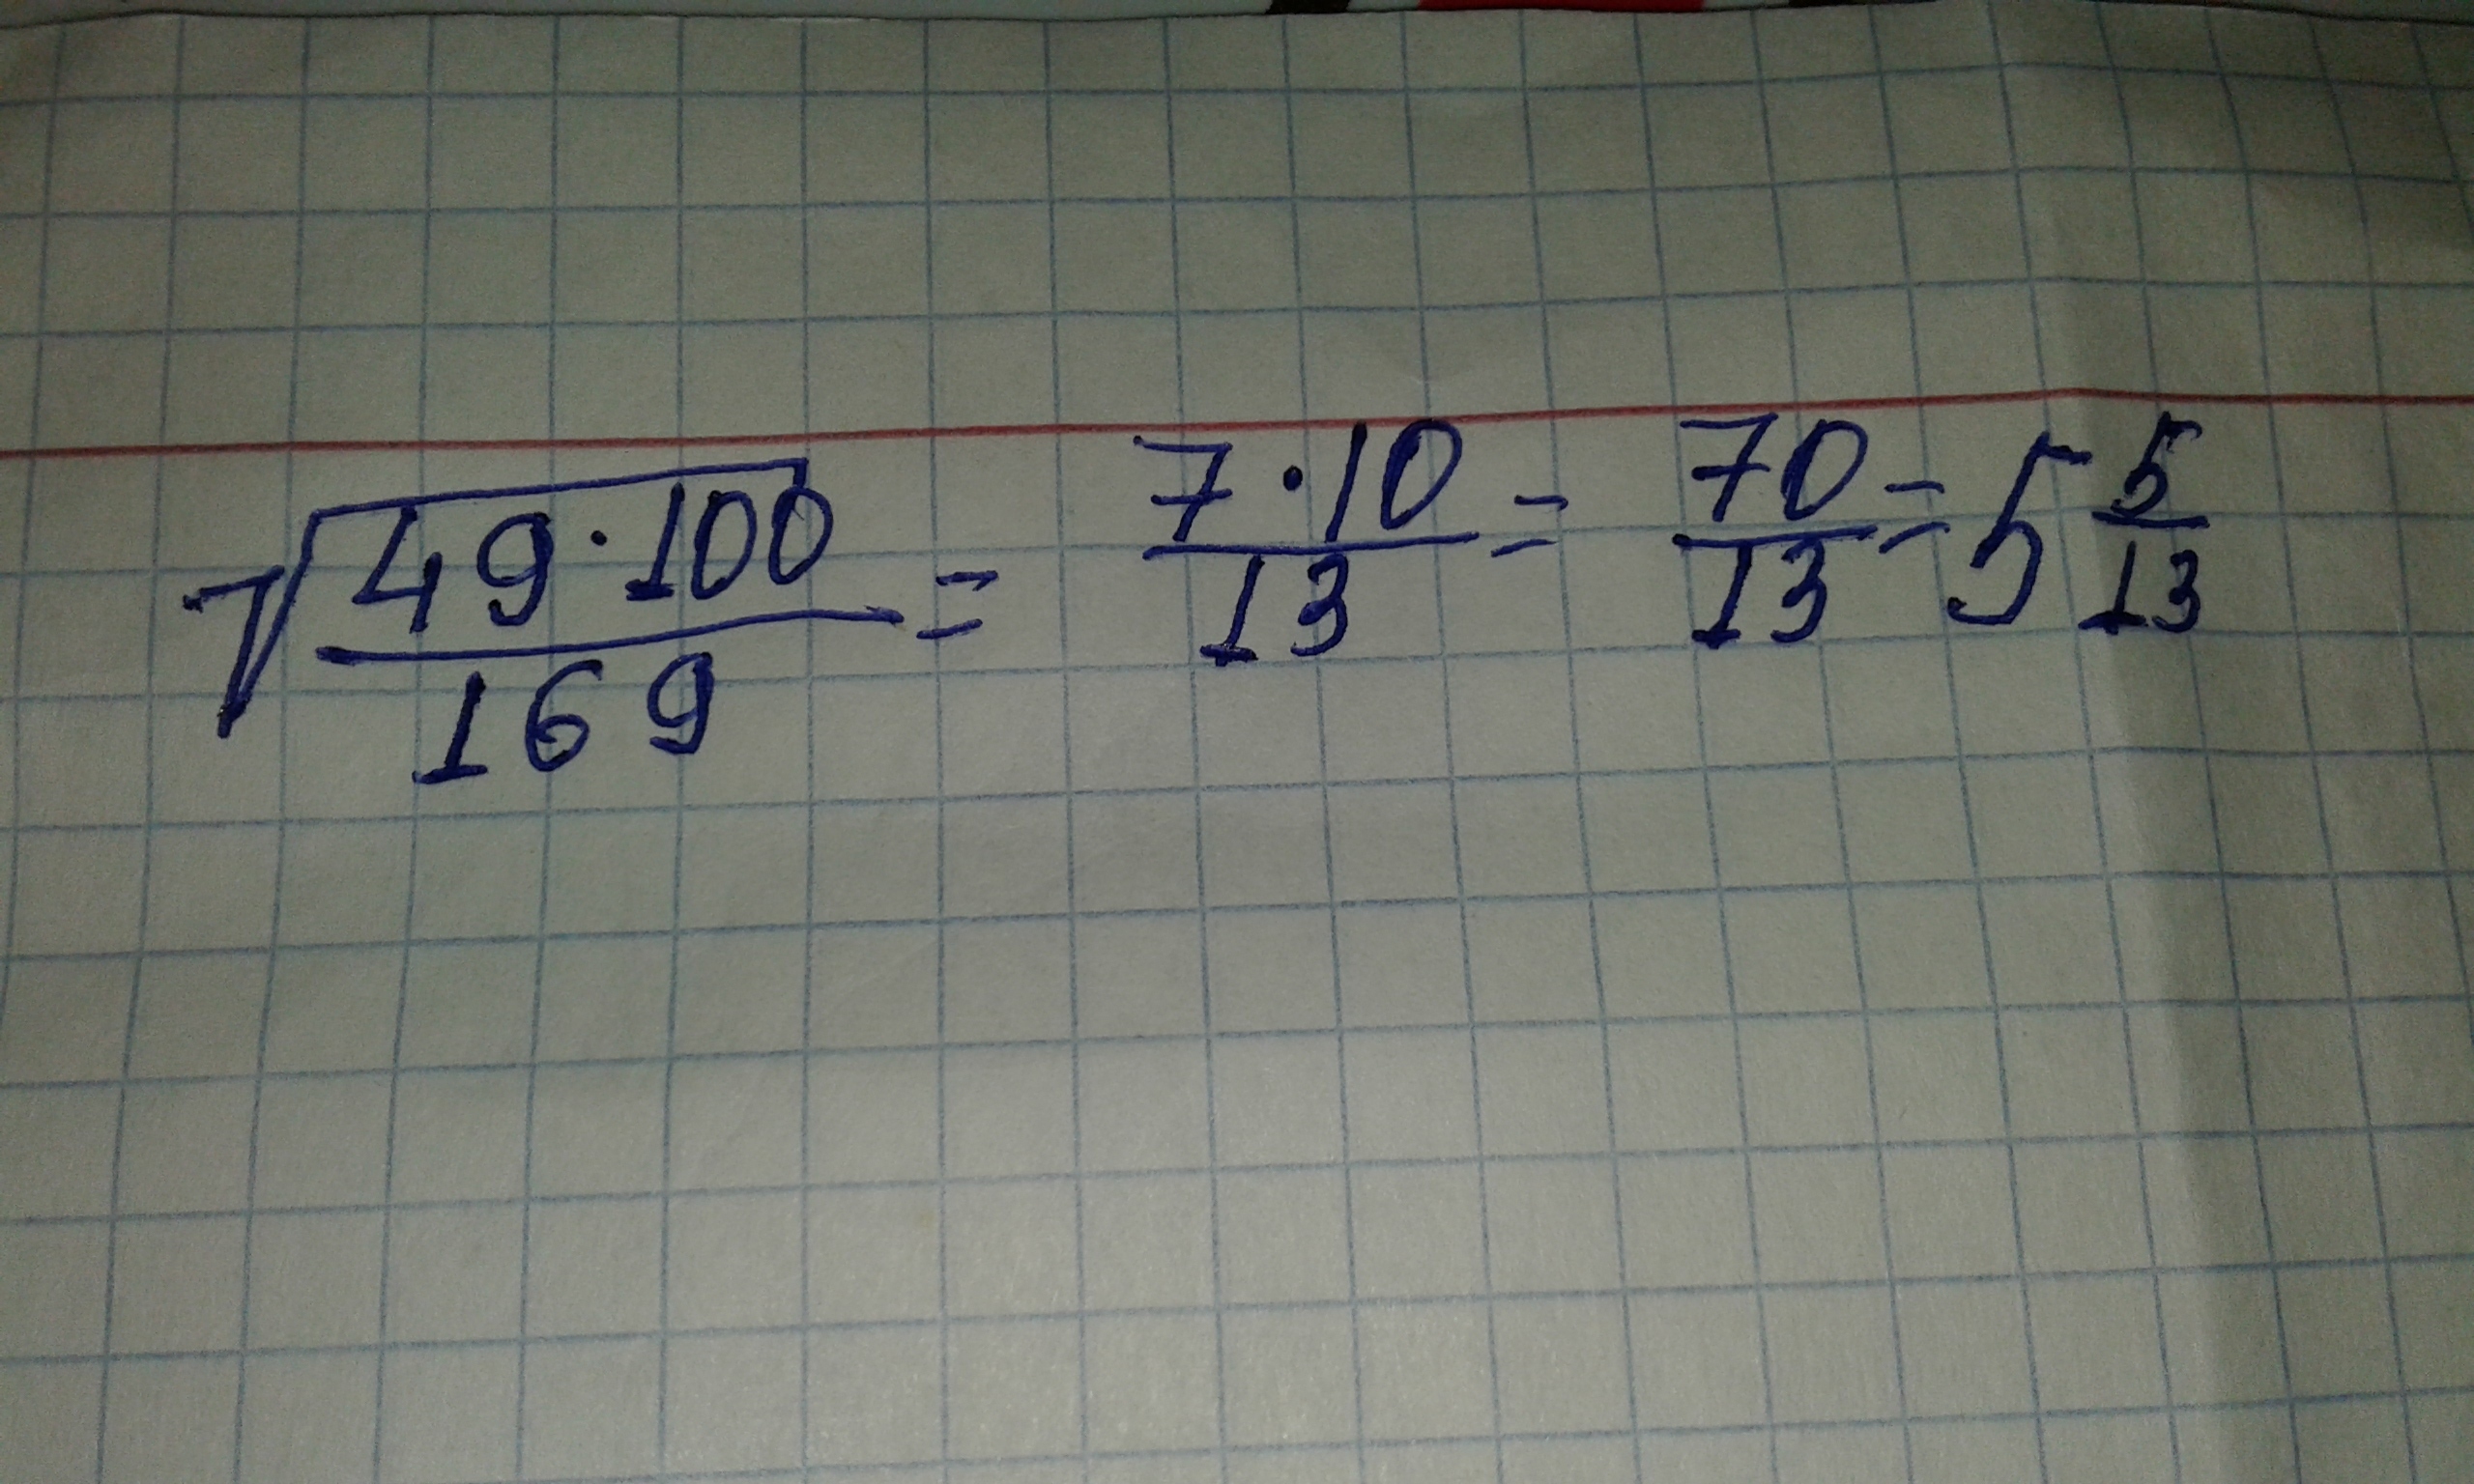 √(49·100/169) = 7·10/13 = 70/13 = 5 5/13